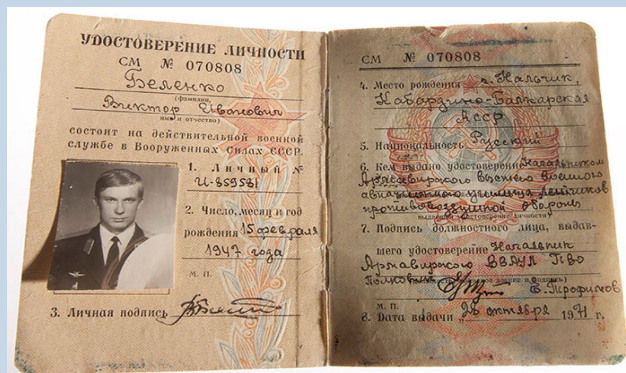 УДОСТОВЕРЕНИЕ ЛИЧНОСТИ
СМ № 070808
Беленко
(фамилия,
Виктор Иванович
имя и отчество)
состоит на действительной военной
службе в Вооруженных Силах СССР.
1. Личный №
И-859581
2. Число, месяц и год
рождения 15 февраля
1947 года
м. п.
3. Личная подпись
СМ № 070808
4. Место рождения г. Нальчик,
Кабардино-Балкарская
АССР
5. Национальность Русский
6. Кем выдано удостоверение Начальником
Армавирского высшего военного
авиационного училища летчиков
противовоздушной обороны
7. Подпись должностного лица, выдав-
шего удостоверение Начальник
Армавирского ВВАУЛ ПВО
полковник
Трофимов
м. п.
8. Дата выдачи 28 октября 1971 г.